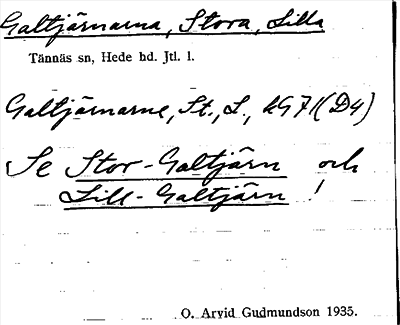 Galtjärnarna, Stora, Lilla
Tännäs sn, Hede hd. Jtl. l.
Galtjärnarne, St., L., kG 71 (D4)
Se Stor-Galtjärn och
Lill-Galtjärn !
O. Arvid Gudmundson 1935.